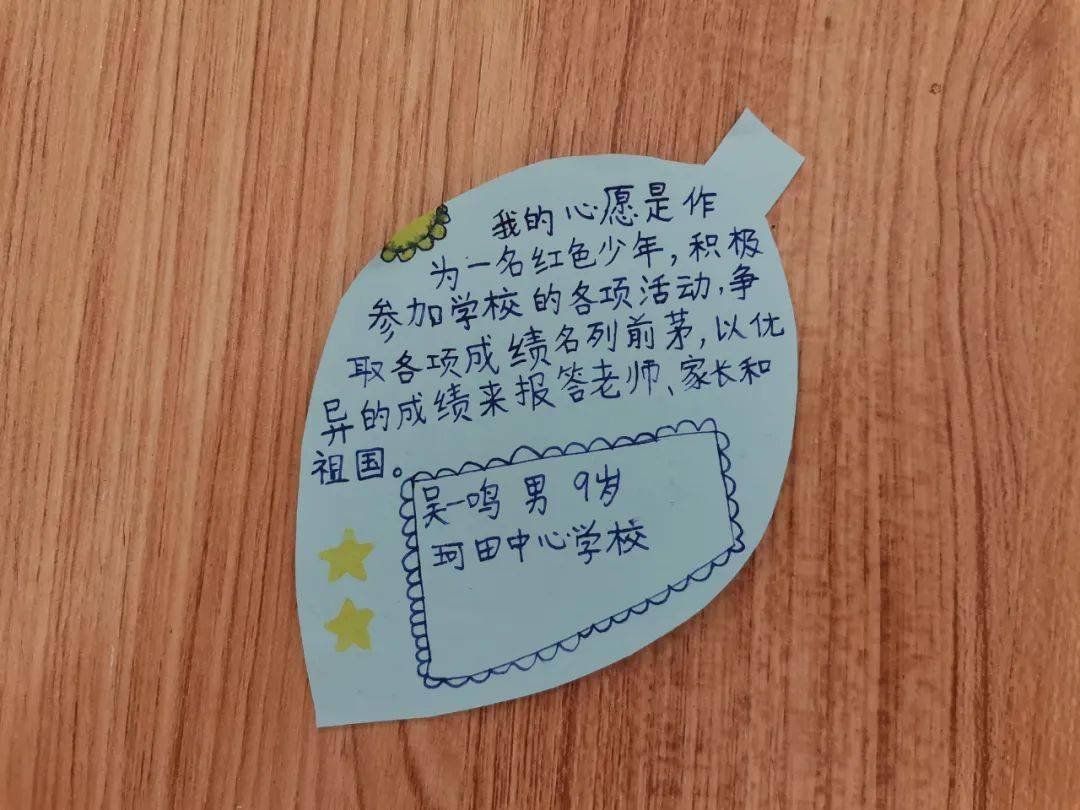 我的心愿是作
为一名红色少年,积极
参加学校的各项活动,争
取各项成绩名列前茅,以优
异的成绩来报答老师、家长和
祖国。
吴一鸣 男 9岁
珂田中心学校